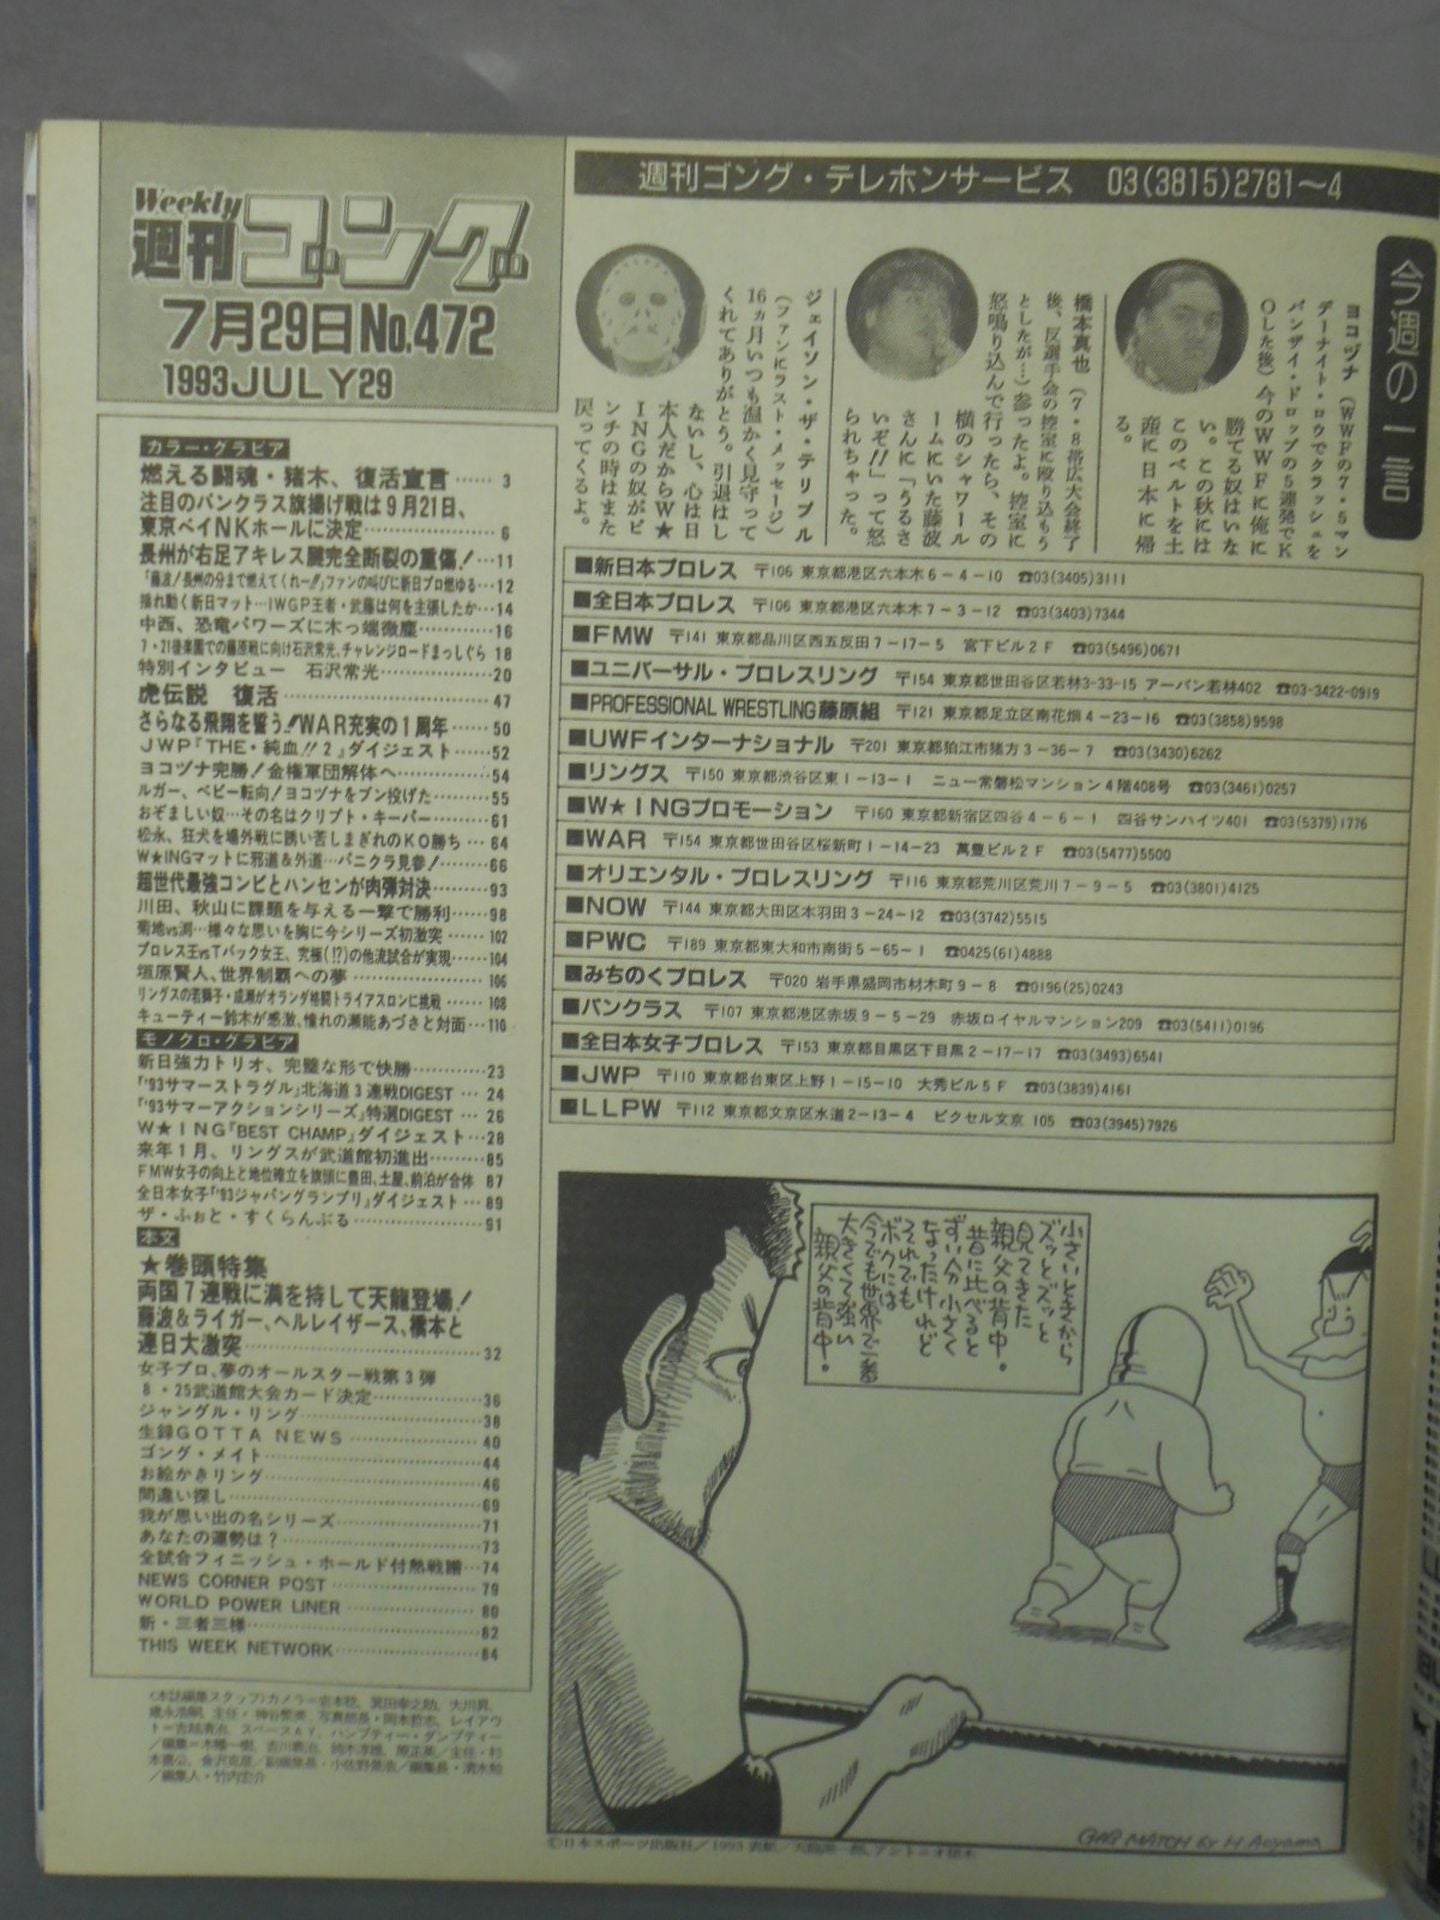 Weekly
週刊ゴング
7月29日No.472
1993JULY29
カラー・グラビア
燃える闘魂・猪木、復活宣言……3
注目のパンクラス旗揚げ戦は9月21日、
東京ベイNKホールに決定……6
長州が右足アキレス腱完全断裂の重傷!…11
「藤波!長州の分まで燃えてくれー!!」ファンの叫びに新日プロ燃ゆる…12
揺れ動く新日マット…IWGP王者・武藤は何を主張したか…14
中西、恐竜パワーズに木っ端微塵……16
7・21後楽園での藤原戦に向け石沢常光、チャレンジロードまっしぐら 18
特別インタビュー 石沢常光……20
虎伝説 復活……47
さらなる飛翔を誓う!!WAR充実の1周年……50
JWP『THE・純血!!2』ダイジェスト……52
ヨコヅナ完勝!金権軍団解体へ……54
ルガー、ベビー転向!ヨコヅナをブン投げた……55
おぞましい奴…その名はクリプト・キーパー……61
松永、狂犬を場外戦に誘い苦しまぎれのKO勝ち…64
W★INGマットに邪道&外道…パニクラ見参!……66
超世代最強コンビとハンセンが肉弾対決……93
川田、秋山に課題を与える一撃で勝利……98
菊地vs渕…様々な思いを胸に今シリーズ初激突……102
プロレス王vsTバック女王、究極(!?)の他流試合が実現……104
垣原賢人、世界制覇への夢……106
リングスの若獅子・成瀬がオランダ格闘トライアスロンに挑戦……108
キューティー鈴木が感激、憧れの瀬能あづさと対面…110
モノクロ・グラビア
新日強力トリオ、完璧な形で快勝……23
「'93サマーストラグル」北海道3連戦DIGEST…24
「'93サマーアクションシリーズ」特選DIGEST…26
W★ING『BEST CHAMP』ダイジェスト…28
来年1月、リングスが武道館初進出……85
FMW女子の向上と地位確立を旗頭に豊田、土屋、前泊が合体 87
全日本女子「'93ジャパングランプリ」ダイジェスト…89
ザ・ふぉと・すくらんぶる……91
本文
★巻頭特集
両国7連戦に満を持して天龍登場!
藤波&ライガー、ヘルレイザース、橋本と
連日大激突……32
女子プロ、夢のオールスター戦第3弾
8・25武道館大会カード決定……36
ジャングル・リング……38
生録GOTTA NEWS……40
ゴング・メイト……44
お絵かきリング……46
間違い探し……69
我が思い出の名シリーズ……71
あなたの運勢は?……73
全試合フィニッシュ・ホールド付熱戦譜…74
NEWS CORNER POST……79
WORLD POWER LINER……80
新・三者三様……82
THIS WEEK NETWORK……84
〈本誌編集スタッフ〉カメラ=
週刊ゴング・テレホンサービス 03(3815)2781〜4
今週の一言
ヨコヅナ(WWFの7・5マン
デーナイト・ロウでクラッシュを
バンザイ・ドロップの5連発でK
Oした後)今のWWFに俺に
勝てる奴はいな
い。この秋には
このベルトを土
産に日本に帰
る。
橋本真也(7・8帯広大会終了
後、反選手会の控室に殴り込もう
としたが…)参ったよ。控室に
怒鳴り込んで行ったら、その
横のシャワール
ームにいた藤波
さんに「うるさ
いぞ!!」って怒
られちゃった。
ジェイソン・ザ・テリブル
(ファンにラスト・メッセージ)
16ヵ月いつも温かく見守って
くれてありがとう。引退はし
ないし、心は日
本人だからW★
INGの奴がピ
ンチの時はまた
戻ってくるよ。
■新日本プロレス 〒106 東京都港区六本木6-4-10 ☎03(3405)3111
■全日本プロレス 〒106 東京都港区六本木7-3-12 ☎03(3403)7344
■FMW 〒141 東京都品川区西五反田7-17-5 宮下ビル2F ☎03(5496)0671
■ユニバーサル・プロレスリング 〒154 東京都世田谷区若林3-33-15 アーバン若林402 ☎03-3422-0919
■PROFESSIONAL WRESTLING藤原組 〒121 東京都足立区南花畑4-23-16 ☎03(3858)9598
■UWFインターナショナル 〒201 東京都狛江市猪方3-36-7 ☎03(3430)6262
■リングス 〒150 東京都渋谷区東1-13-1 ニュー常磐松マンション4階408号 ☎03(3461)0257
■W★INGプロモーション 〒160 東京都新宿区四谷4-6-1 四谷サンハイツ401 ☎03(5379)1776
■WAR 〒154 東京都世田谷区桜新町1-14-23 萬豊ビル2F ☎03(5477)5500
■オリエンタル・プロレスリング 〒116 東京都荒川区荒川7-9-5 ☎03(3801)4125
■NOW 〒144 東京都大田区本羽田3-24-12 ☎03(3742)5515
■PWC 〒189 東京都東大和市南街5-65-1 ☎0425(61)4888
■みちのくプロレス 〒020 岩手県盛岡市材木町9-8 ☎0196(25)0243
■パンクラス 〒107 東京都港区赤坂9-5-29 赤坂ロイヤルマンション209 ☎03(5411)0196
■全日本女子プロレス 〒153 東京都目黒区下目黒2-17-17 ☎03(3493)6541
■JWP 〒110 東京都台東区上野1-15-10 大秀ビル5F ☎03(3839)4161
■LLPW 〒112 東京都文京区水道2-13-4 ビクセル文京 105 ☎03(3945)7926
小さいときから
ズッとズッと
見てきた
親父の背中。
昔に比べると
ずい分小さく
なったけれど
それでも
ボクには
今でも世界で一番
大きくて強い
親父の背中。
GAG MATCH by H.Aoyama
©日本スポーツ出版社/1993